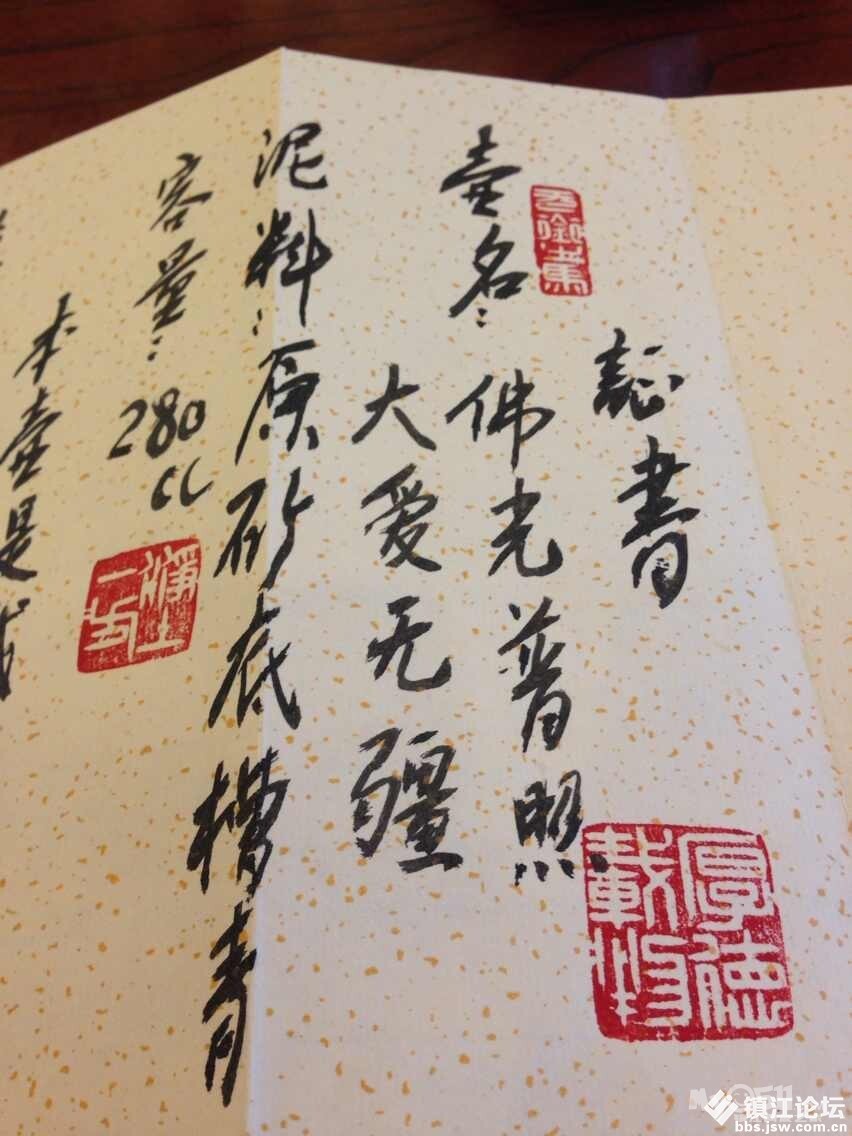 証書
壶名：佛光普照
大爱无疆
泥料：原矿底槽青
容量：280cc
本壶是
厚德載物
淨土一方
镇江论坛
bbs.jsw.com.cn